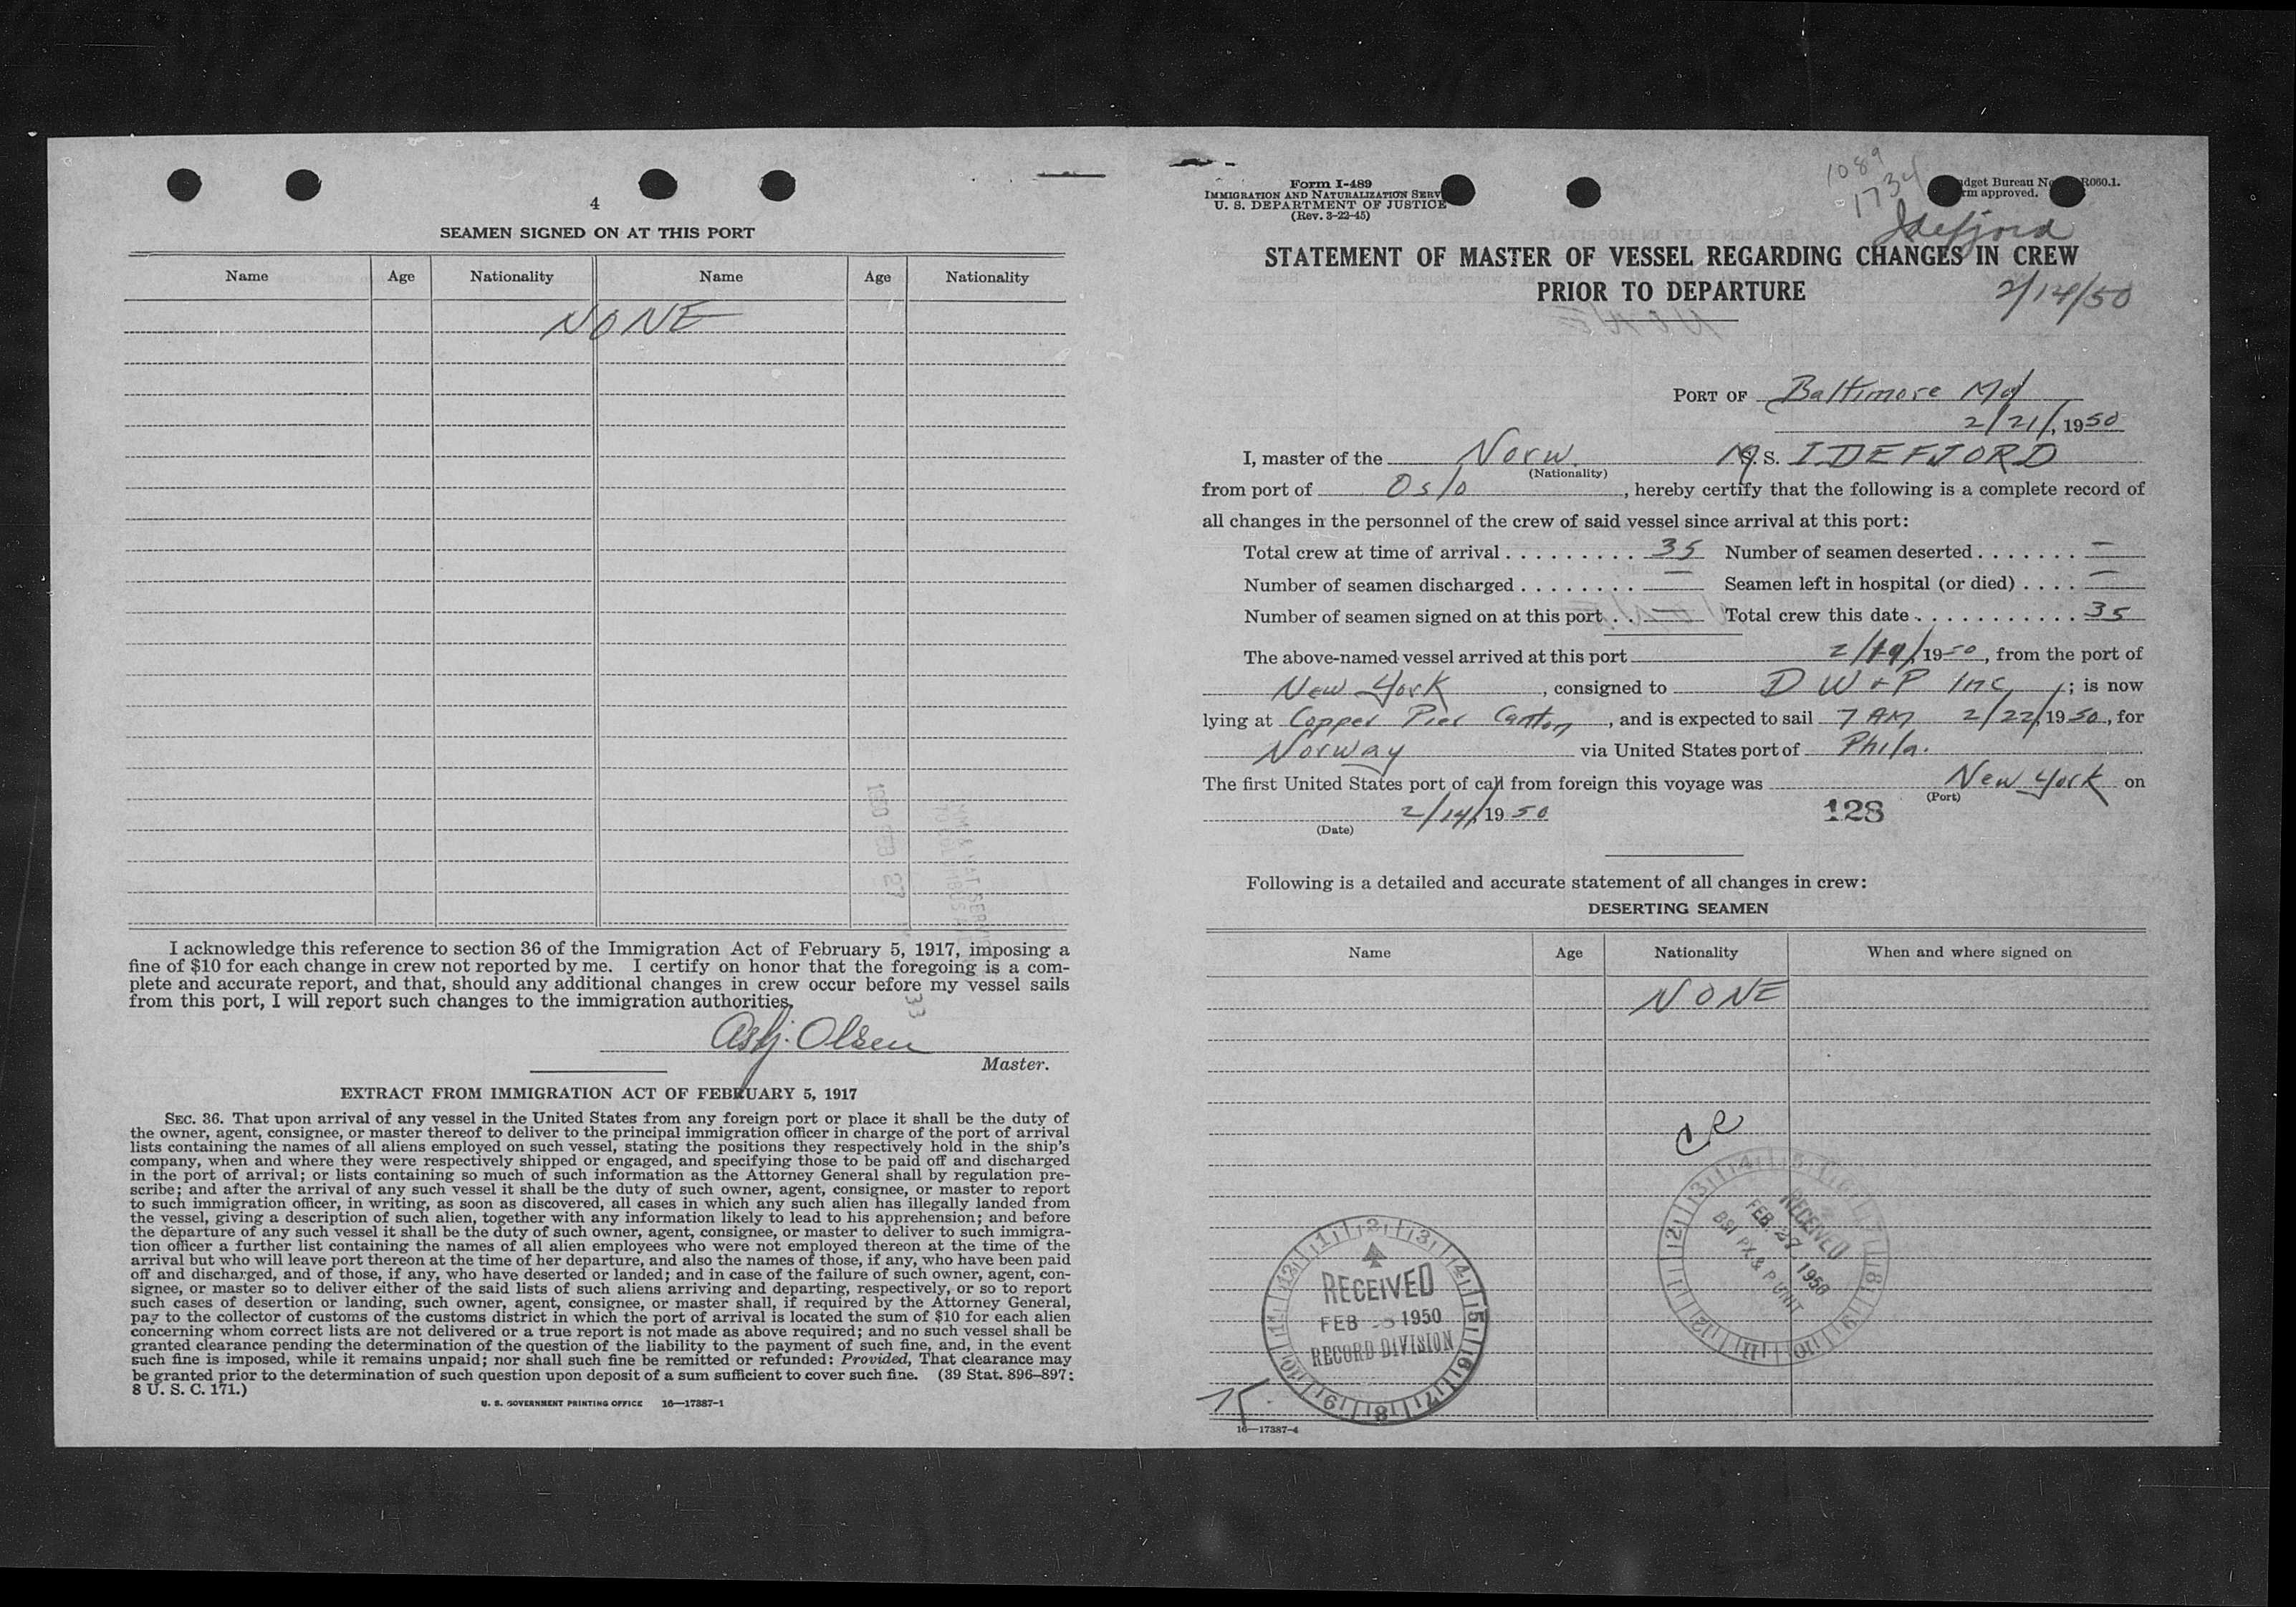 4
SEAMEN SIGNED ON AT THIS PORT
Name Age Nationality Name Age Nationality
NONE
I acknowledge this reference to section 36 of the Immigration Act of February 5, 1917, imposing a
fine of $10 for each change in crew not reported by me. I certify on honor that the foregoing is a com-
plete and accurate report, and that, should any additional changes in crew occur before my vessel sails
from this port, I will report such changes to the immigration authorities.
33
Asbj. Olsen
Master.
EXTRACT FROM IMMIGRATION ACT OF FEBRUARY 5, 1917
SEC. 36. That upon arrival of any vessel in the United States from any foreign port or place it shall be the duty of
the owner, agent, consignee, or master thereof to deliver to the principal immigration officer in charge of the port of arrival
lists containing the names of all aliens employed on such vessel, stating the positions they respectively hold in the ship's
company, when and where they were respectively shipped or engaged, and specifying those to be paid off and discharged
in the port of arrival; or lists containing so much of such information as the Attorney General shall by regulation pre-
scribe; and after the arrival of any such vessel it shall be the duty of such owner, agent, consignee, or master to report
to such immigration officer, in writing, as soon as discovered, all cases in which any such alien has illegally landed from
the vessel, giving a description of such alien, together with any information likely to lead to his apprehension; and before
the departure of any such vessel it shall be the duty of such owner, agent, consignee, or master to deliver to such immigra-
tion officer a further list containing the names of all alien employees who were not employed thereon at the time of the
arrival but who will leave port thereon at the time of her departure, and also the names of those, if any, who have been paid
off and discharged, and of those, if any, who have deserted or landed; and in case of the failure of such owner, agent, con-
signee, or master so to deliver either of the said lists of such aliens arriving and departing, respectively, or so to report
such cases of desertion or landing, such owner, agent, consignee, or master shall, if required by the Attorney General,
pay to the collector of customs of the customs district in which the port of arrival is located the sum of $10 for each alien
concerning whom correct lists are not delivered or a true report is not made as above required; and no such vessel shall be
granted clearance pending the determination of the question of the liability to the payment of such fine, and, in the event
such fine is imposed, while it remains unpaid; nor shall such fine be remitted or refunded: Provided, That clearance may
be granted prior to the determination of such question upon deposit of a sum sufficient to cover such fine. (39 Stat. 896–897;
8 U. S. C. 171.)
U. S. GOVERNMENT PRINTING OFFICE 16—17387-1
Form I-489
IMMIGRATION AND NATURALIZATION SERV
U. S. DEPARTMENT OF JUSTICE
(Rev. 3-22-45)
1089
1734
dget Bureau No R060.1.
rm approved.
Idefjord
STATEMENT OF MASTER OF VESSEL REGARDING CHANGES IN CREW
PRIOR TO DEPARTURE
2/14/50
PORT OF Baltimore Md
2/21/, 1950
I, master of the Norw. M. S. IDEFJORD
(Nationality)
from port of Oslo, hereby certify that the following is a complete record of
all changes in the personnel of the crew of said vessel since arrival at this port:
Total crew at time of arrival . . . . . . . . . 35 Number of seamen deserted . . . . . . . —
Number of seamen discharged . . . . . . . . — Seamen left in hospital (or died) . . . . —
Number of seamen signed on at this port . . — Total crew this date . . . . . . . . . . . . 35
The above-named vessel arrived at this port 2/19/, 1950, from the port of
New York, consigned to D W + P Inc; is now
lying at Copper Pier Canton, and is expected to sail 7 AM 2/22/, 1950, for
Norway via United States port of Phila.
The first United States port of call from foreign this voyage was New York on
(Port)
2/14/, 1950
(Date)
128
Following is a detailed and accurate statement of all changes in crew:
DESERTING SEAMEN
Name Age Nationality When and where signed on
NONE
CR
RECEIVED
FEB. 27 1950
BSI PX & P UNIT
RECEIVED
FEB 1950
RECORD DIVISION
16—17387-4